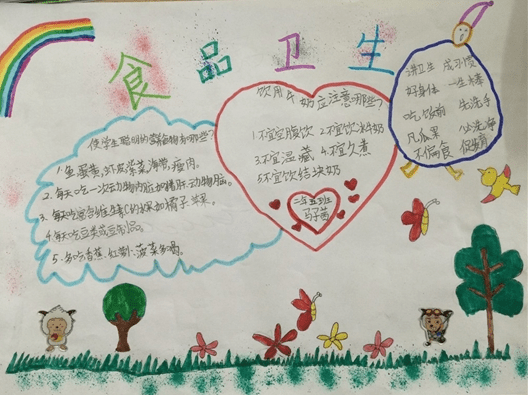 食品卫生
使学生聪明的食物有哪些?
1.鱼、蛋黄、虾皮、紫菜、海带、瘦肉。
2.每天吃一次动物内脏如猪肝、动物脑。
3.每天吃富含维生素C的水果如橘子苹果。
4.每天吃豆类或豆制品。
5.多吃香蕉、红薯、菠菜
饮用牛奶应注意哪些?
1.不宜空腹饮 2.不宜饮冰奶
3.不宜温藏 4.不宜久煮
5.不宜饮结块奶
二年五班
讲卫生 成习惯
好身体 一生棒
吃饭前 先洗手
凡瓜果 必洗净
不偏食 保发育